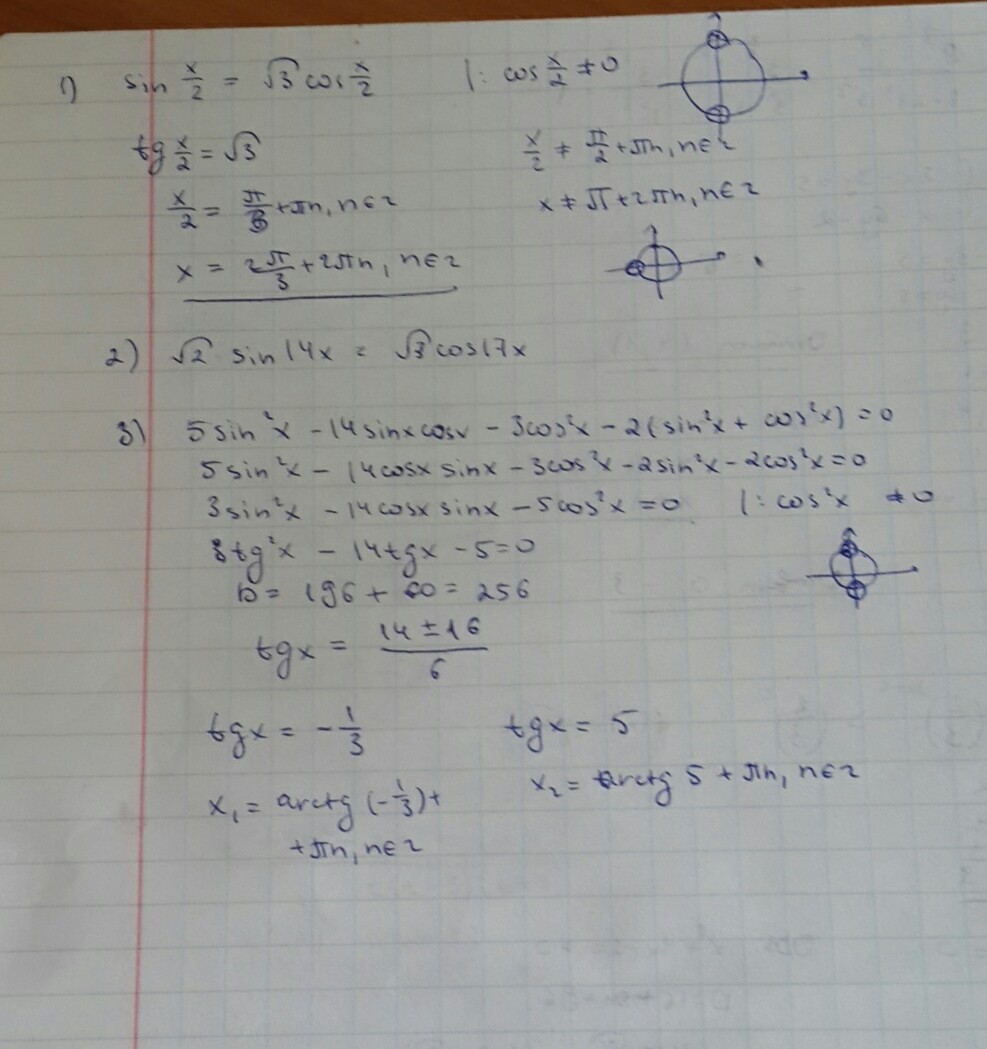 1) sin x/2 = √3 cos x/2 |: cos x/2 ≠ 0
tg x/2 = √3 x/2 ≠ π/2 + πn, n∈z
x/2 = π/3 + πn, n∈z x ≠ π + 2πn, n∈z
x = 2π/3 + 2πn, n∈z
2) √2 sin14x = √3 cos17x
3) 5sin²x - 14sinxcosx - 3cos²x - 2(sin²x + cos²x) = 0
5sin²x - 14cosx sinx - 3cos²x - 2sin²x - 2cos²x = 0
3sin²x - 14cosx sinx - 5cos²x = 0 |: cos²x ≠ 0
3tg²x - 14tgx - 5 = 0
D = 196 + 60 = 256
tgx = 14 ± 16 / 6
tgx = -1/3 tgx = 5
x₁ = arctg(-1/3) + x₂ = arctg 5 + πn, n∈z
+ πn, n∈z